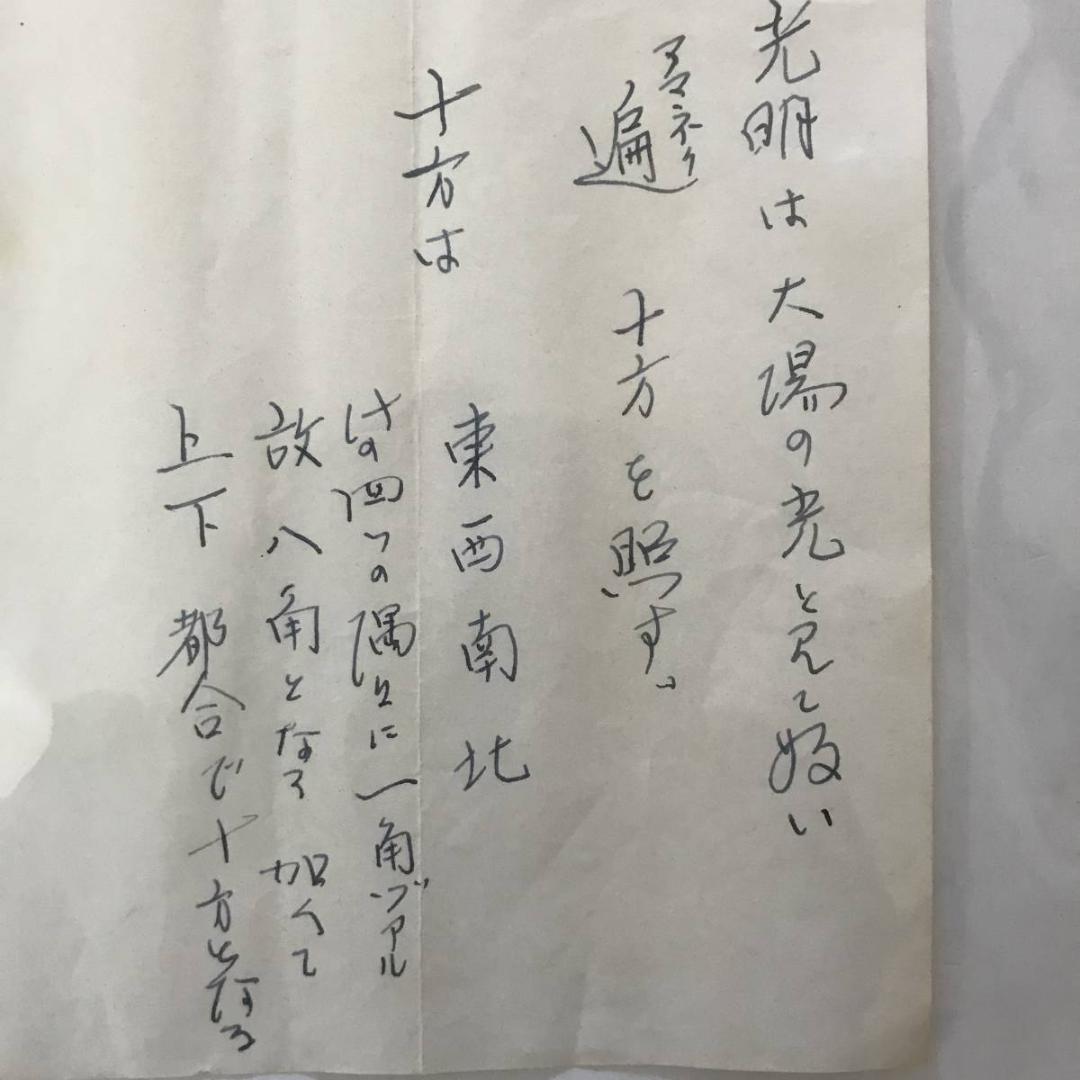 光明は大陽の光と見て好い
アマネク
遍 十方を照す。
十方は
東西南北
其の四つの隅〻に一角ヅヽアル
故八角となる 加へて
上下 都合で十方となる